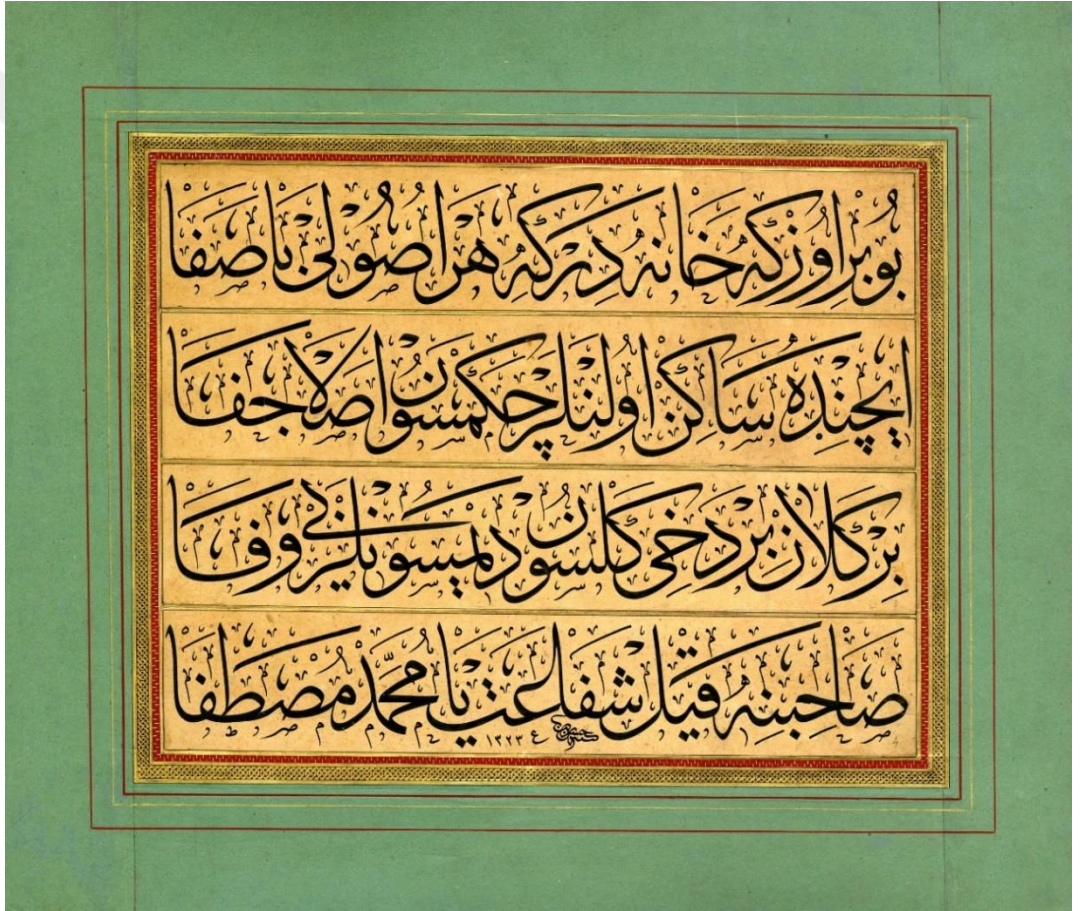 بُو بِر اوزكه خَانَه دِر كِه هَر اُصُولى بَا صَفَا
ايچِنده سَاكِن اولَنلَر چكمسُون اصلا جفَا
بِر كَلان بِر دَخى كلسُون ديميسون يَاكى وفَا
صَاحِبنِه قيل شفَاعت يَا مُحَمَّد مُصطَفَا
١٣٢٣